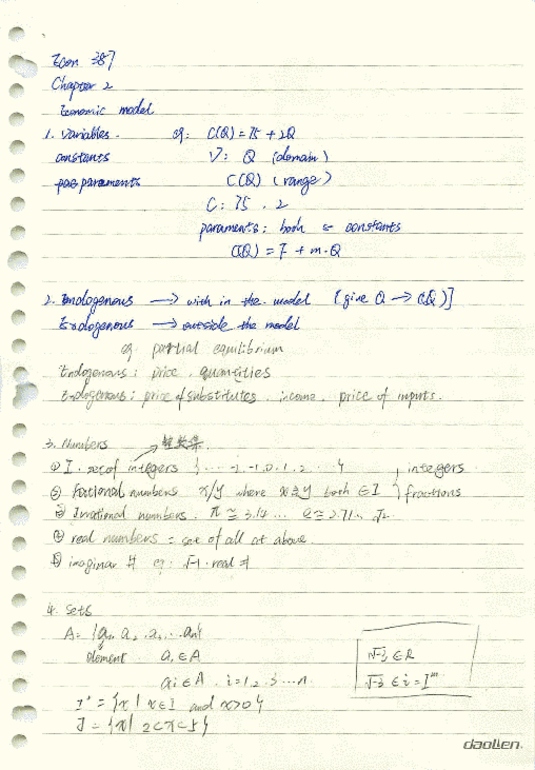 Econ 387
Chapter 2
Economic model
1. Variables. eg: C(Q)=75+2Q
constants V: Q (domain)
paraments C(Q) (range)
C: 75, 2
paraments: both constants
C(Q) = F + m·Q
2. Endogenous → with in the model [give Q → C(Q)]
Exdogenous → outside the model
eg. partial equilibrium
Endogenous: price, quantities
Exdogenous: price of substitutes, income, price of inputs.
3. Numbers
① I. set of integers {... -2, -1, 0, 1, 2 ... } integers
② Factional numbers x/y where x & y both ∈ I } fractions
③ Irrational numbers. π ≅ 3.14... e ≅ 2.71.. √2
④ real numbers = set of all at above.
⑤ imaginar # eg: √-1 · real #
4. Sets
A = {a₁, a₂, a₃, ... aₙ}
element a₁ ∈ A
aᵢ ∈ A. i=1, 2, 3 ... n.
I⁺ = {x | x ∈ I and x>0}
J = {x | 2<x<5}
∈ R
√-3 ∈ i = Iᵐ
daolien